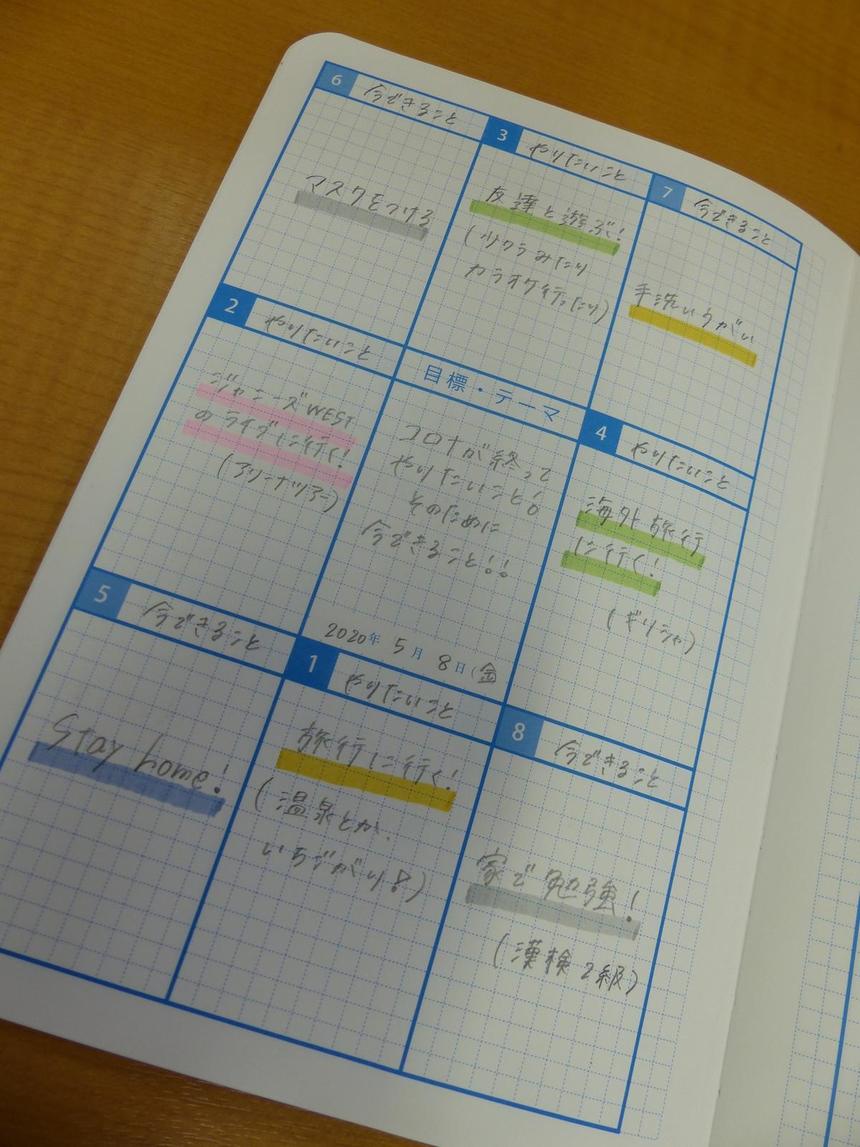 6 今できること
マスクをつける
3 やりたいこと
友達と遊ぶ!
(サクラみたり
カラオケ行ったり)
7 今できること
手洗いうがい
2 やりたいこと
ジャニーズWEST
のライブに行く!
(アリーナツアー)
目標・テーマ
コロナが終って
やりたいこと!
そのために
今できること!!
2020年 5月 8日(金
4 やりたいこと
海外旅行
に行く!
(ギリシャ)
5 今できること
Stay home!
1 やりたいこと
旅行に行く!
(温泉とか、
いちごがり!)
8 今できること
家で勉強!
(漢検2級)